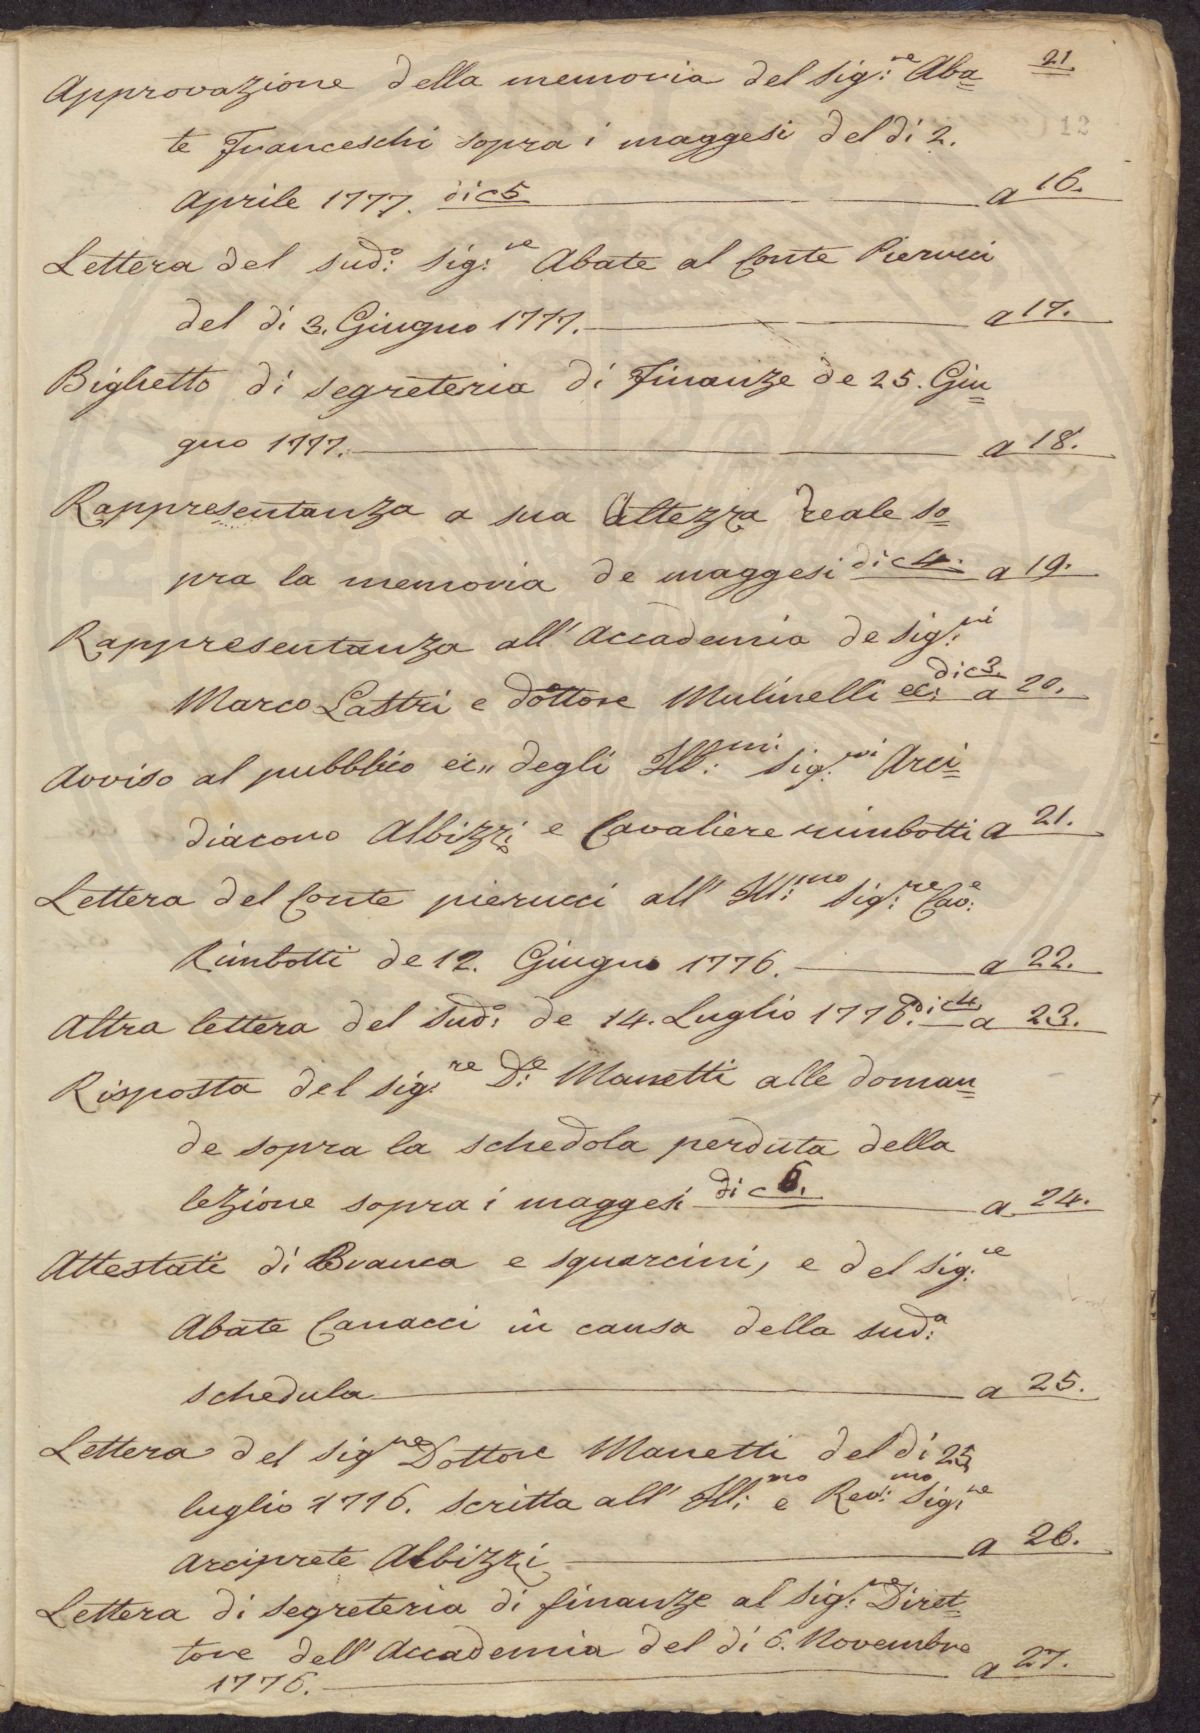 21.
12
Approvazione della memoria del Sig:re Aba=
te Franceschi sopra i maggesi del di 2.
Aprile 1777. di c 5 a 16.
Lettera del sudo: Sig:re Abate al Conte Pierucci
del di 3. Giugno 1777. a 17.
Biglietto di segreteria di Finanze de 25. Giu=
gno 1777. a 18.
Rappresentanza a sua Altezza reale so=
pra la memoria de maggesi di c 4. a 19.
Rappresentanza all' Accademia de Sig:ri
Marco Lastri e dottore Mulinelli ec: di c 3. a 20.
Avviso al pubblico ec,, degli Ill:mi Sig:ri Arci=
diacono Albizzi e Cavaliere rimbotti a 21.
Lettera del Conte pierucci all' Ill:mo Sig:re Cav:e
Rimbotti de 12. Giugno 1776. a 22.
Altra lettera del Sudo: de 14. Luglio 1776. di c 4 a 23.
Risposta del sig:re D:e Manetti alle doman=
de sopra la schedola perduta della
lezione sopra i maggesi di c 6. a 24.
Attestati di Branca e squarcini, e del Sig:re
Abate Canacci in causa della sud:a
schedula a 25.
Lettera del Sigre Dottore Manetti del di 25
luglio 1776. scritta all' Ill:mo e Rev:mo Sig:re
Arciprete Albizzi a 26.
Lettera di segreteria di finanze al Sig:re Diret=
tore dell' Accademia del di 6. Novembre
1776. a 27.